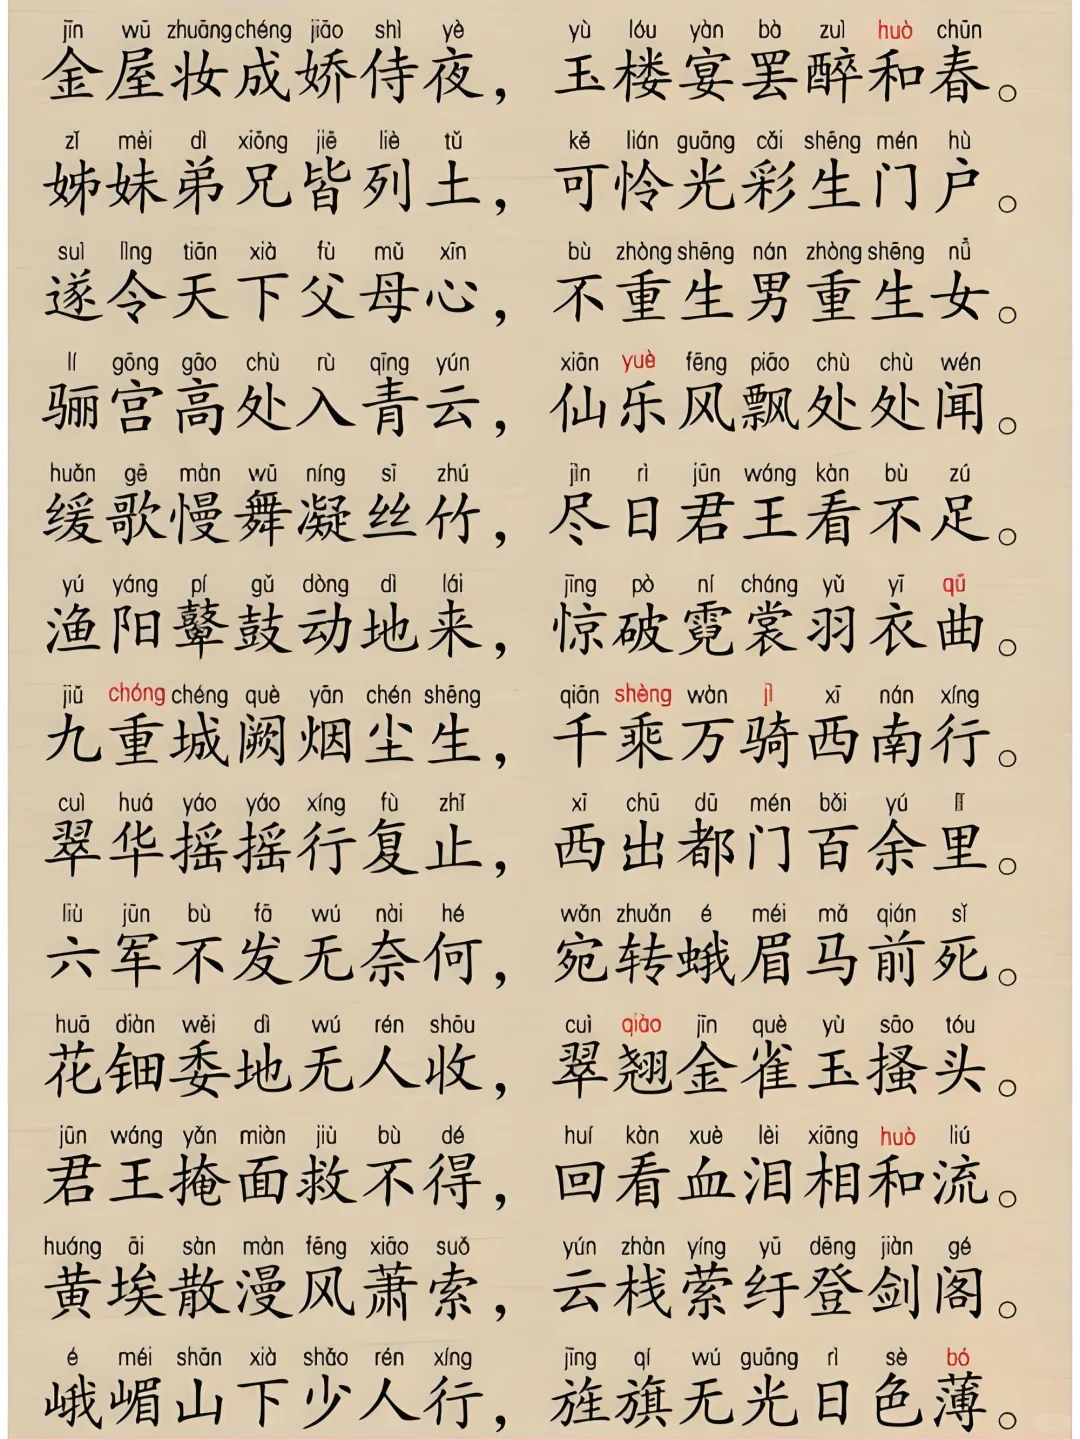 jīn wū zhuāng chéng jiāo shì yè yù lóu yàn bà zuì huò chūn
金屋妆成娇侍夜，玉楼宴罢醉和春。
zǐ mèi dì xiōng jiē liè tǔ kě lián guāng cǎi shēng mén hù
姊妹弟兄皆列土，可怜光彩生门户。
suì lìng tiān xià fù mǔ xīn bù zhòng shēng nán zhòng shēng nǚ
遂令天下父母心，不重生男重生女。
lí gōng gāo chù rù qīng yún xiān yuè fēng piāo chù chù wén
骊宫高处入青云，仙乐风飘处处闻。
huǎn gē màn wǔ níng sī zhú jìn rì jūn wáng kàn bù zú
缓歌慢舞凝丝竹，尽日君王看不足。
yú yáng pí gǔ dòng dì lái jīng pò ní cháng yǔ yī qǔ
渔阳鼙鼓动地来，惊破霓裳羽衣曲。
jiǔ chóng chéng què yān chén shēng qiān shèng wàn jì xī nán xíng
九重城阙烟尘生，千乘万骑西南行。
cuì huá yáo yáo xíng fù zhǐ xī chū dū mén bǎi yú lǐ
翠华摇摇行复止，西出都门百余里。
liù jūn bù fā wú nài hé wǎn zhuǎn é méi mǎ qián sǐ
六军不发无奈何，宛转蛾眉马前死。
huā diàn wěi dì wú rén shōu cuì qiào jīn què yù sāo tóu
花钿委地无人收，翠翘金雀玉搔头。
jūn wáng yǎn miàn jiù bù dé huí kàn xuè lèi xiāng huò liú
君王掩面救不得，回看血泪相和流。
huáng āi sàn màn fēng xiāo suǒ yún zhàn yíng yū dēng jiàn gé
黄埃散漫风萧索，云栈萦纡登剑阁。
é méi shān xià shǎo rén xíng jīng qí wú guāng rì sè bó
峨嵋山下少人行，旌旗无光日色薄。